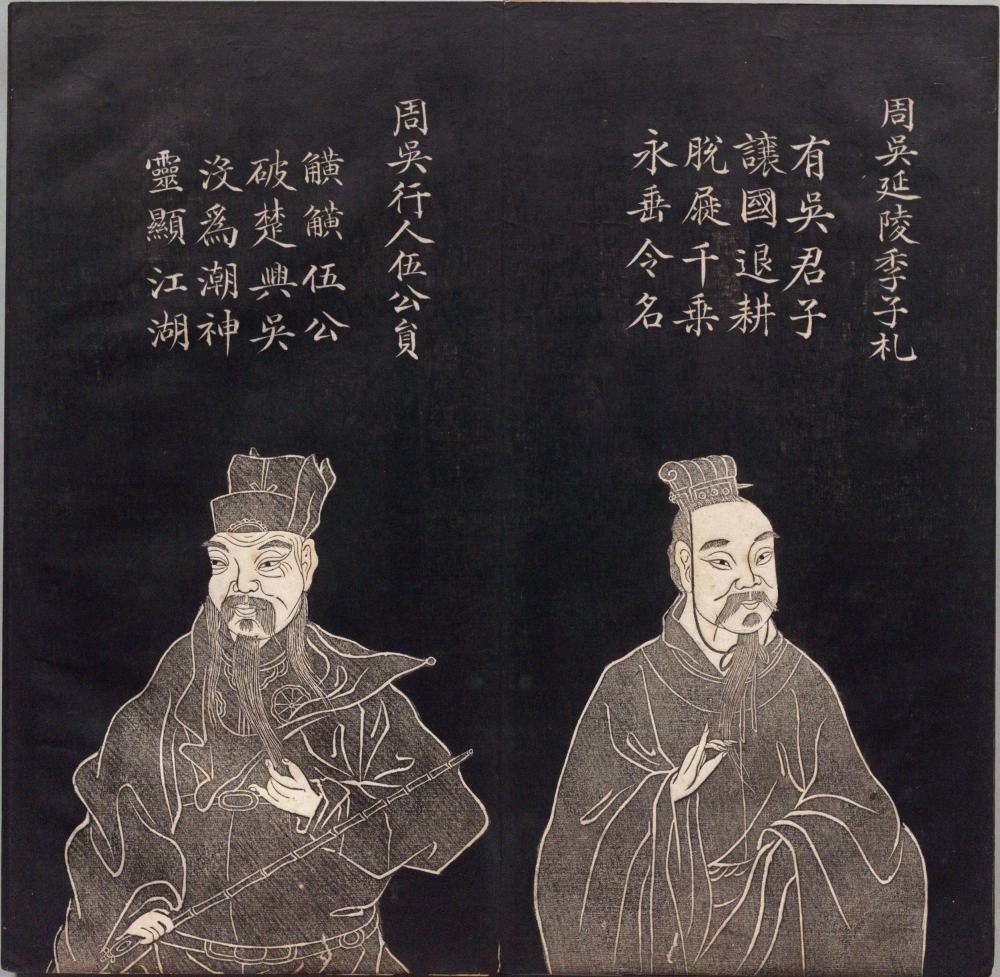 周吳延陵季子札
有吳君子
讓國退耕
脫屣千乗
永垂令名
周吳行人伍公員
觥觥伍公
破楚興吳
沒為潮神
靈顯江湖